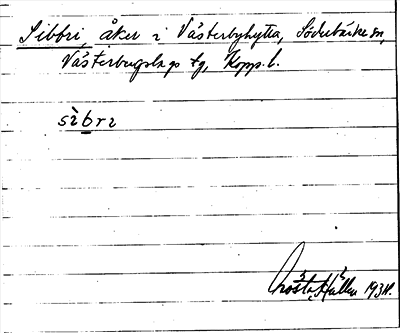 Sibbri, åker i Västerbyhytta, Söderbärke sn,
Västerbergslags tg, Kopp. l.
sìbri
Gösta Hallen 1931.